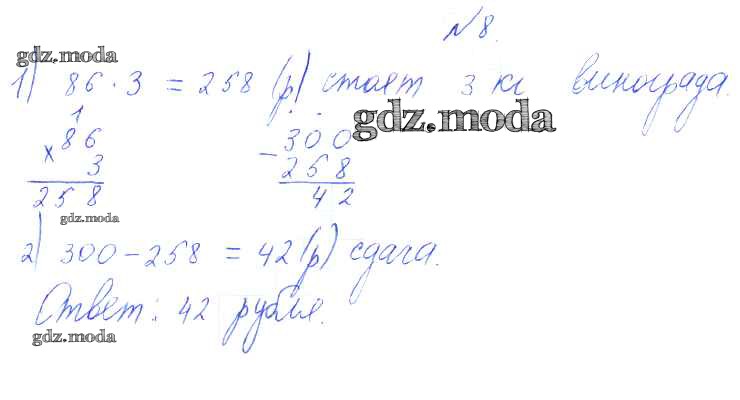 №8.
gdz.moda
1) 86 · 3 = 258 (р) стоят 3 кг винограда.
gdz.moda
1
× 86
3
258
− 300
258
42
gdz.moda
2) 300 − 258 = 42 (р) сдача.
Ответ: 42 рубля.
gdz.moda